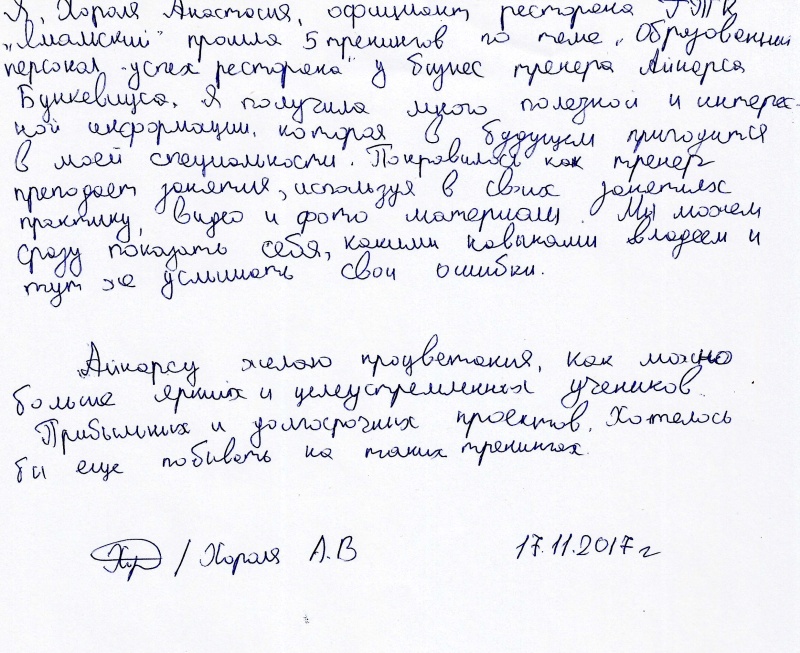 Я, Хороля Анастасия, официант ресторана ГТК
„Ямамский" прошла 5 тренингов по теме „Образованный
персонал - успех ресторана" у бизнес тренера Айнарса
Бункевицса. Я получила много полезной и интерес-
ной информации, которая в будущем пригодится
в моей специальности. Понравилось как тренер
преподает занятия, используя в своих занятиях
практику, видео и фото материалы. Мы можем
сразу показать себя, какими навыками владеем и
тут же услышать свои ошибки.
Айнарсу желаю процветания, как можно
больше ярких и целеустремленных учеников.
Прибыльных и долгосрочных проектов. Хотелось
бы еще побывать на таких тренингах.
/ Хороля А.В 17.11.2017г